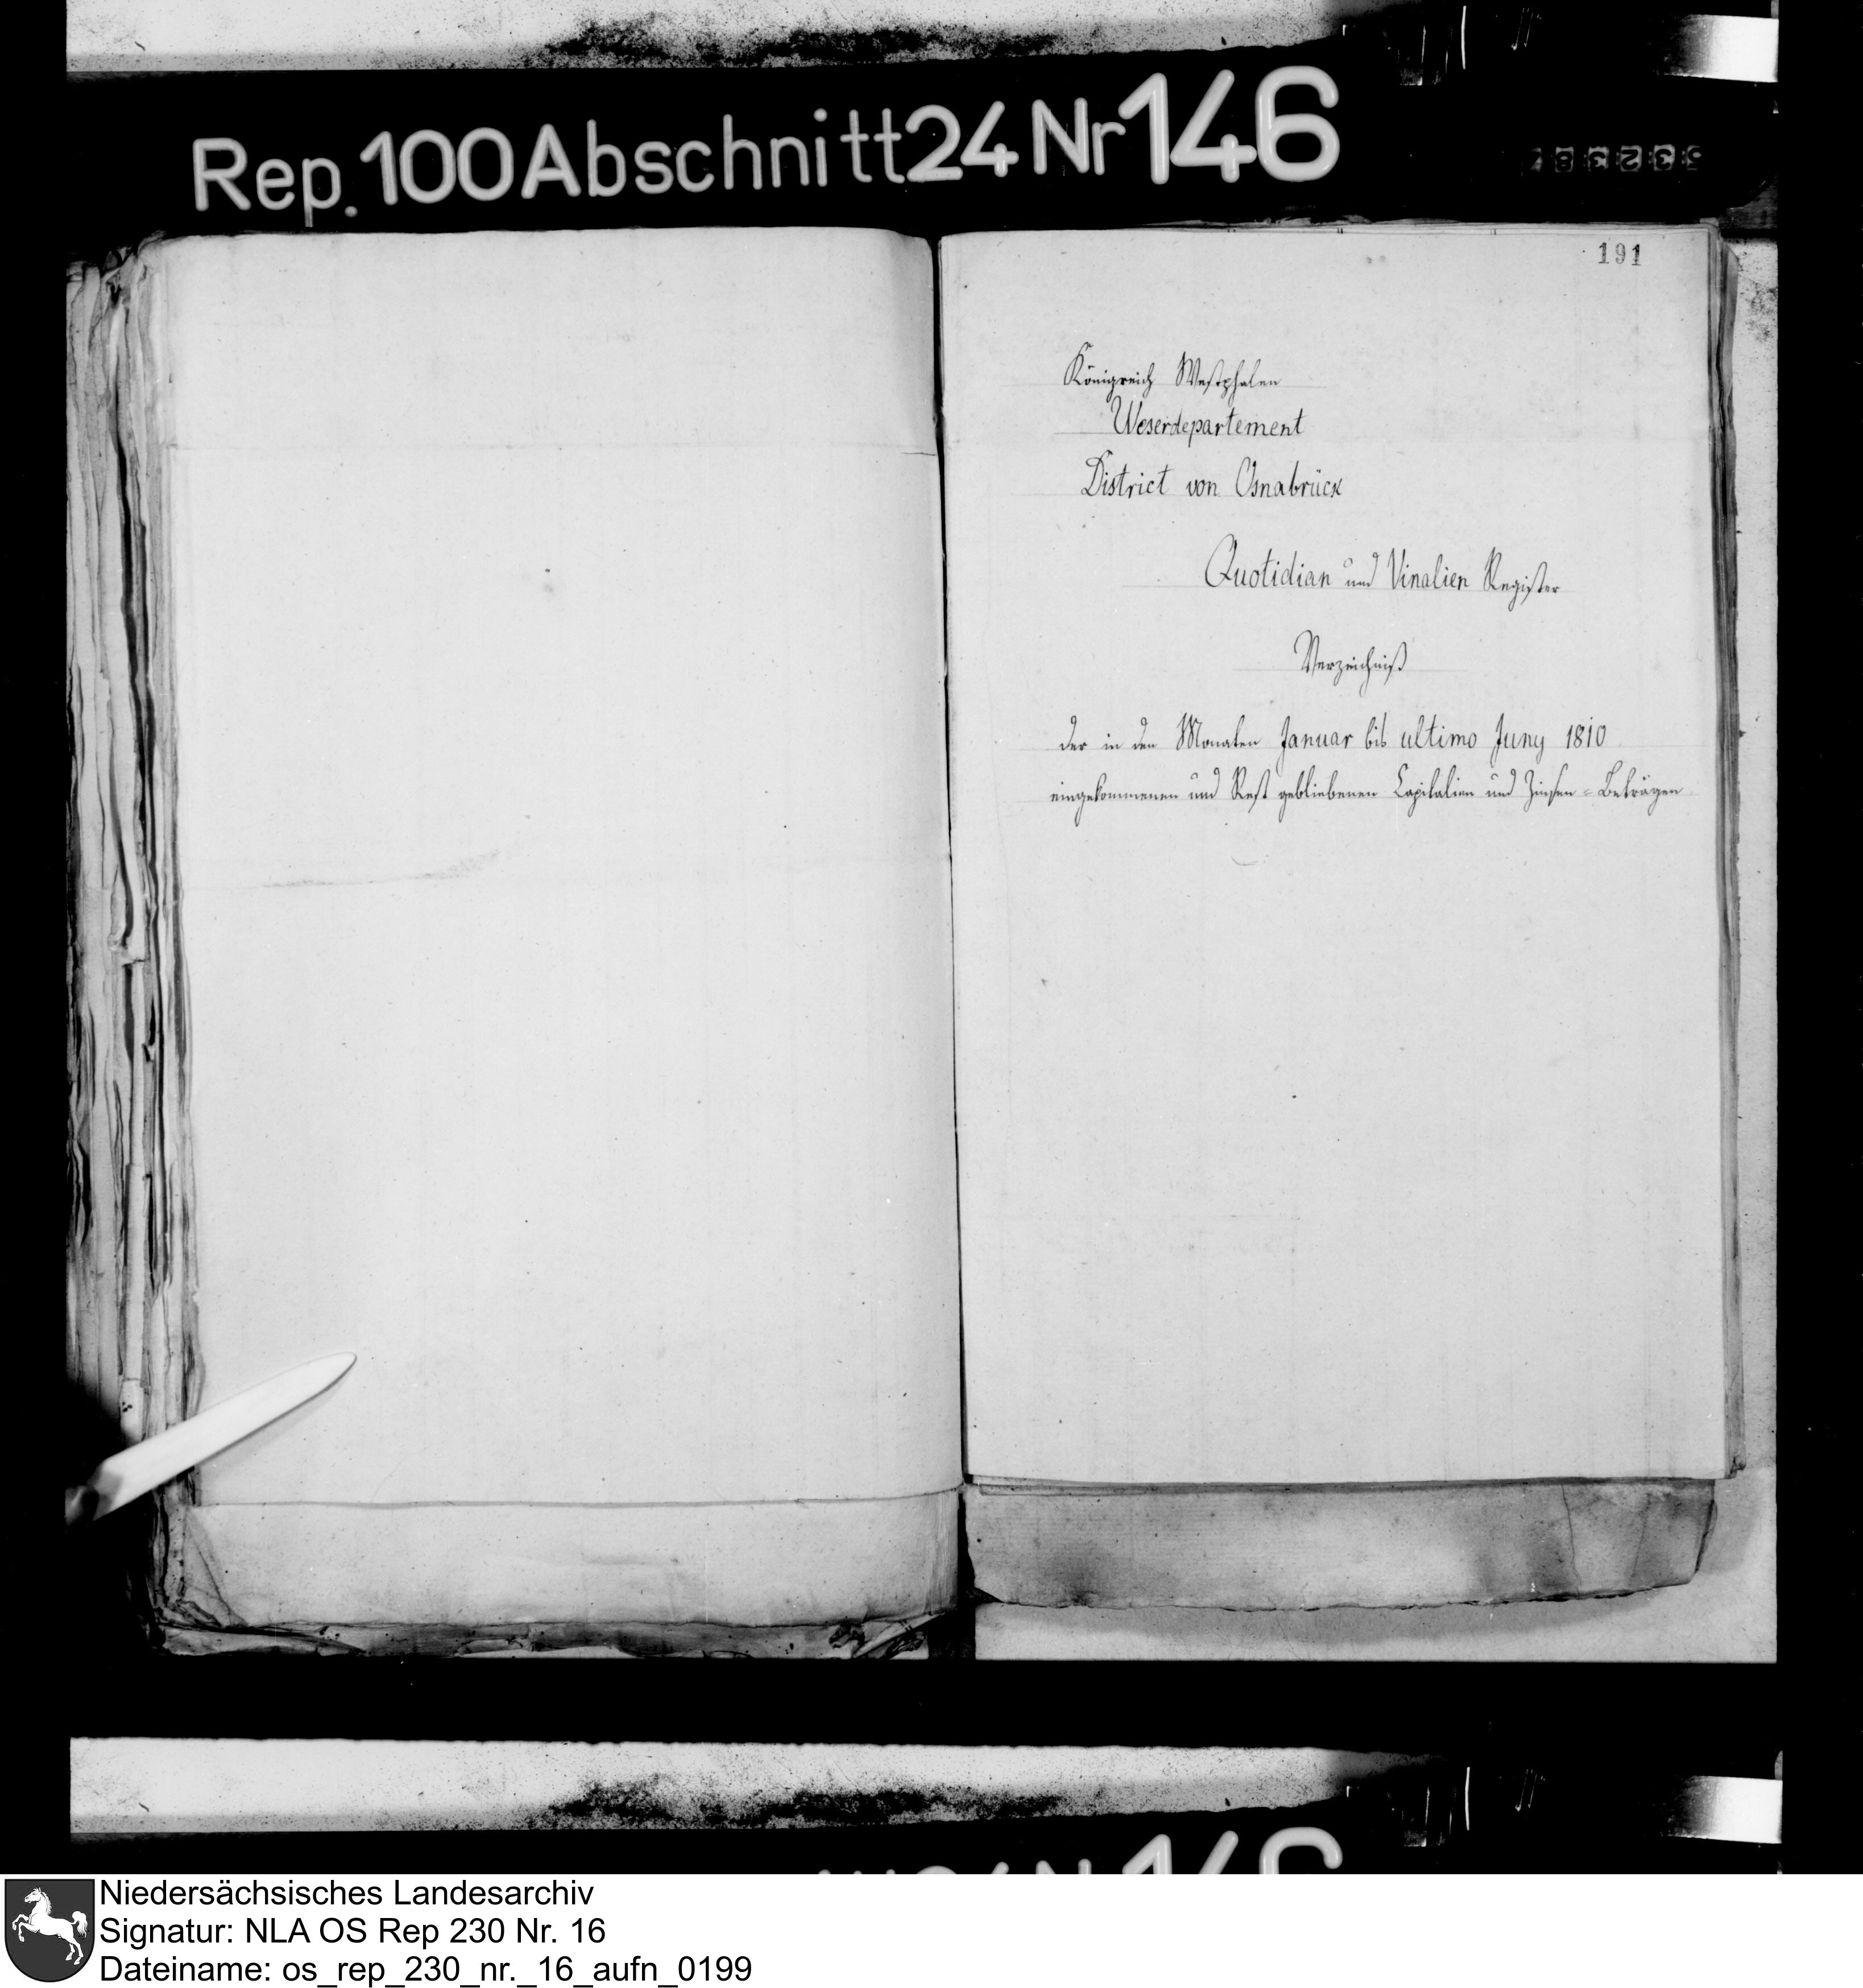 Rep. 100 Abschnitt 24 Nr 146
191
Königreich Westphalen
Weserdepartement
District von Osnabrück
Quotidian und Vinalien Register
Verzeichniß
der in den Monaten Januar bis ultimo Juny 1810
eingekommenen und Rest gebliebenen Capitalien und Zinsen-Beträgen
Niedersächsisches Landesarchiv
Signatur: NLA OS Rep 230 Nr. 16
Dateiname: os_rep_230_nr._16_aufn_0199